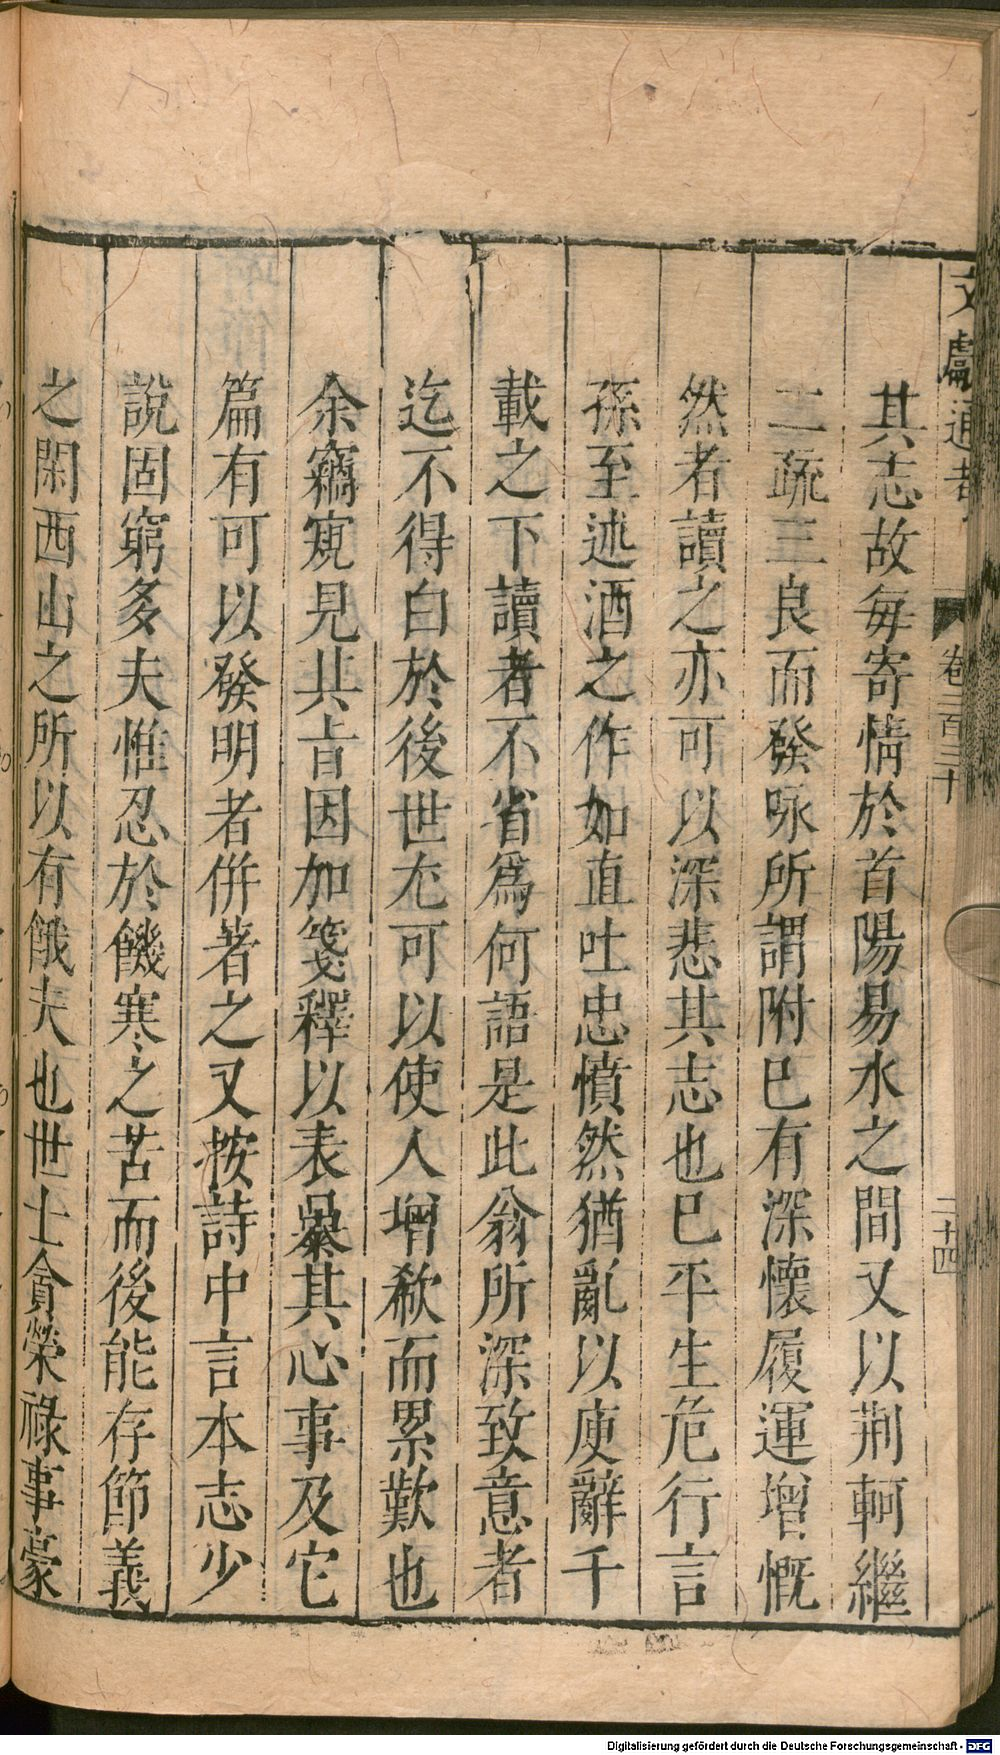 文獻通考 卷二百三十 二十四
其志故每寄情於首陽易水之間又以荆軻繼
二疏三良而發咏所謂附巳有深懷履運增慨
然者讀之亦可以深悲其志也巳平生危行言
孫至述酒之作如直吐忠憤然猶亂以庾辭千
載之下讀者不省爲何語是此翁所深致意者
迄不得白於後世尤可以使人增欷而累歎也
余竊窺見其旨因加箋釋以表暴其心事及它
篇有可以發明者併著之又按詩中言本志少
說固窮多夫惟忍於饑寒之苦而後能存節義
之閑西山之所以有餓夫也世士貪榮祿事豪
Digitalisierung gefördert durch die Deutsche Forschungsgemeinschaft - DFG